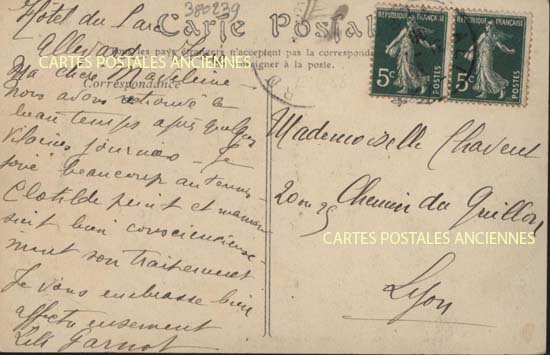 380239
Hôtel du Parc
Carte Postale
Allevard
Tous les pays étrangers n'acceptent pas la correspondance
se renseigner à la poste.
CARTES POSTALES ANCIENNES
Ma chère Madeleine
Correspondance
nous avons retrouvé le
beau temps après quelques
vilaines journées - Je
joue beaucoup au tennis -
Clotilde peint et maman
suit bien consciencieuse
ment son traitement
Je vous embrasse bien
affectueusement
Lili Garnot
REPUBLIQUE FRANÇAISE
5c
REPUBLIQUE FRANÇAISE
5c
Mademoiselle Chavent
Chemin du
CARTES POSTALES ANCIENNES
Lyon